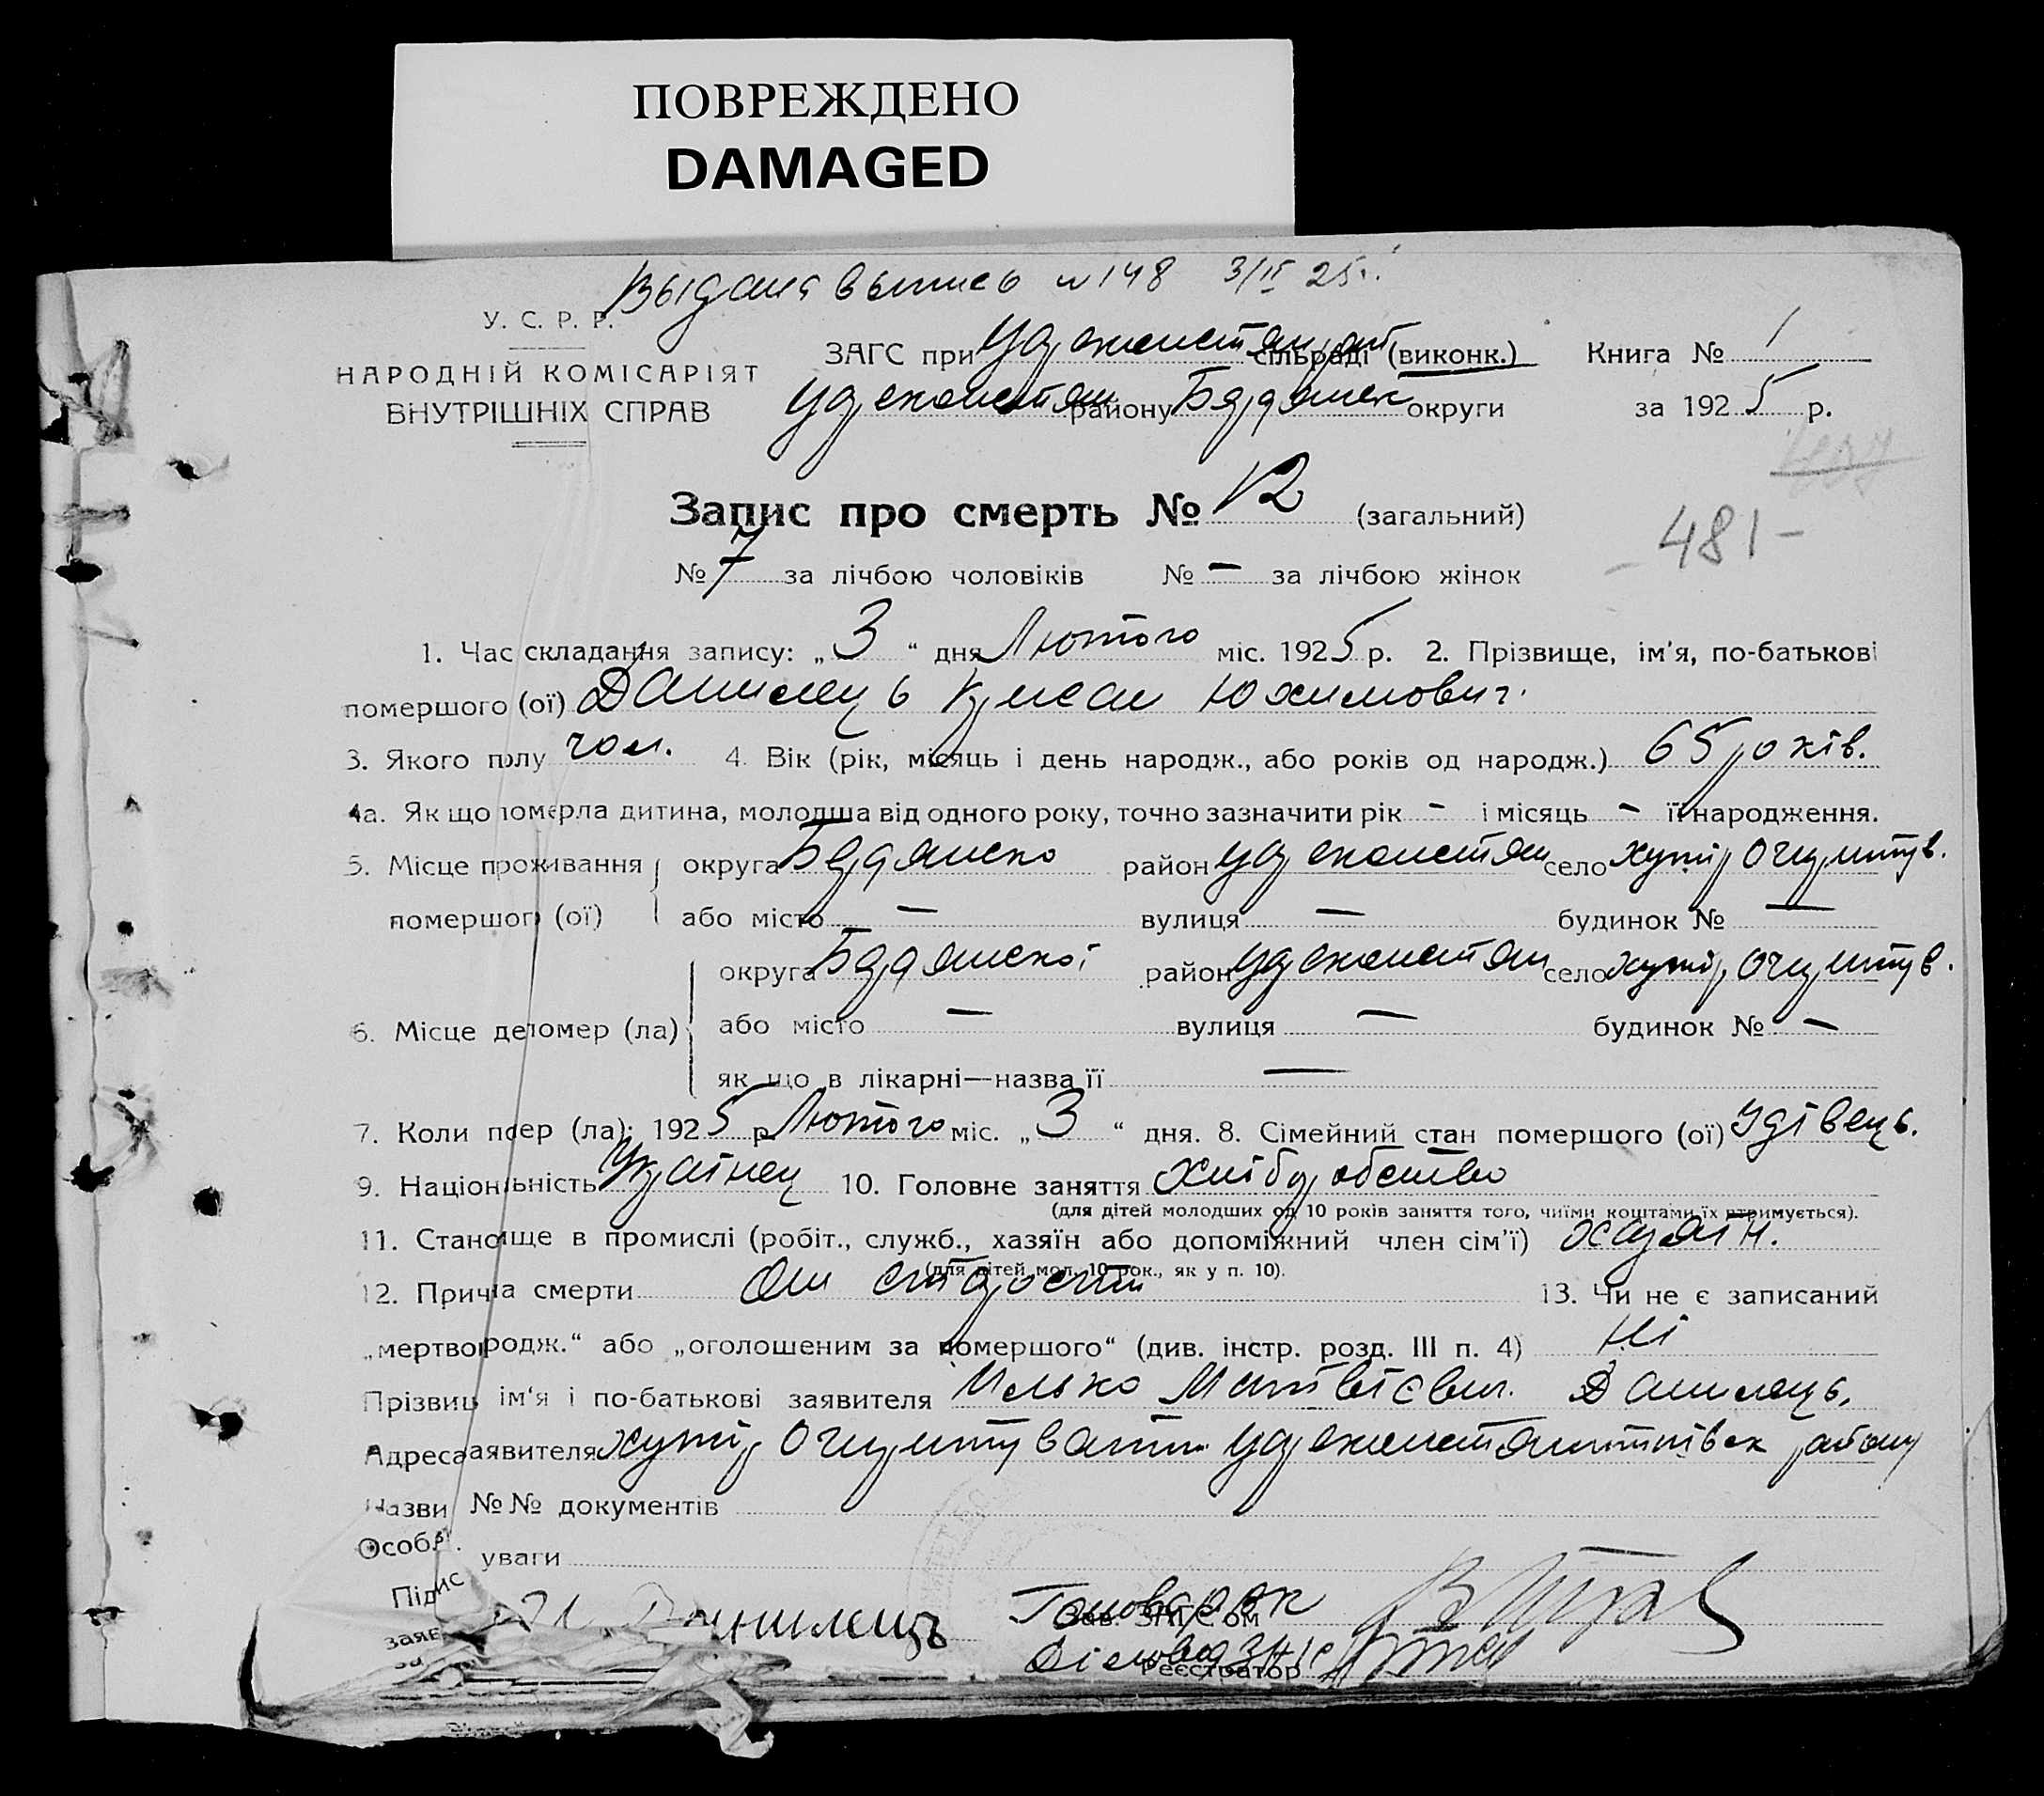 ПОВРЕЖДЕНО
DAMAGED
Выдана выпись №148 3/II 25г.
У. С. Р. Р.
НАРОДНІЙ КОМІСАРІЯТ
ВНУТРІШНІХ СПРАВ
ЗАГС при Цареконстан сільраді (виконк.)
Книга № 1
Цареконстан району Бердянск округи
за 1925 р.
Запис про смерть № 12 (загальний)
481-
№ 7 за лічбою чоловіків № — за лічбою жінок
1. Час складання запису: „3“ дня Лютого міс. 1925 р. 2. Прізвище, ім'я, по-батькові
помершого (ої) Данилець Юхимович.
3. Якого полу чол. 4. Вік (рік, місяць і день народж., або років од народж.) 65 років.
4а. Як що померла дитина, молодша від одного року, точно зазначити рік - і місяць - її народження.
5. Місце проживання округа Бердянско район Цареконстан село хутір
помершого (ої) або місто — вулиця — будинок № —
округа Бердянскоі район Цареконстан село хутір
6. Місце де помер (ла) або місто — вулиця — будинок № —
як що в лікарні—назва її —
7. Коли помер (ла): 1925 р. Лютого міс. „3“ дня. 8. Сімейний стан помершого (ої) Удівець.
9. Національність Українец 10. Головне заняття Хліборобство
(для дітей молодших од 10 років заняття того, чиїми коштами їх утримується).
11. Становище в промислі (робіт., служб., хазяїн або допоміжний член сім'ї) хазяін.
(для дітей мол. 10 рок., як у п. 10).
12. Причина смерти От старости 13. Чи не є записаний
„мертвородж.“ або „оголошеним за помершого“ (див. інстр. розд. III п. 4) Ні
Прізвище ім'я і по-батькові заявителя Илько Матвієвич. Данилець.
Адреса заявителя хутір району
Назви №№ документів
Особл. уваги
Підпис И Данилець
заяв
Зав. ЗАГС'ом
Діловод ЗАГС
Реєстратор